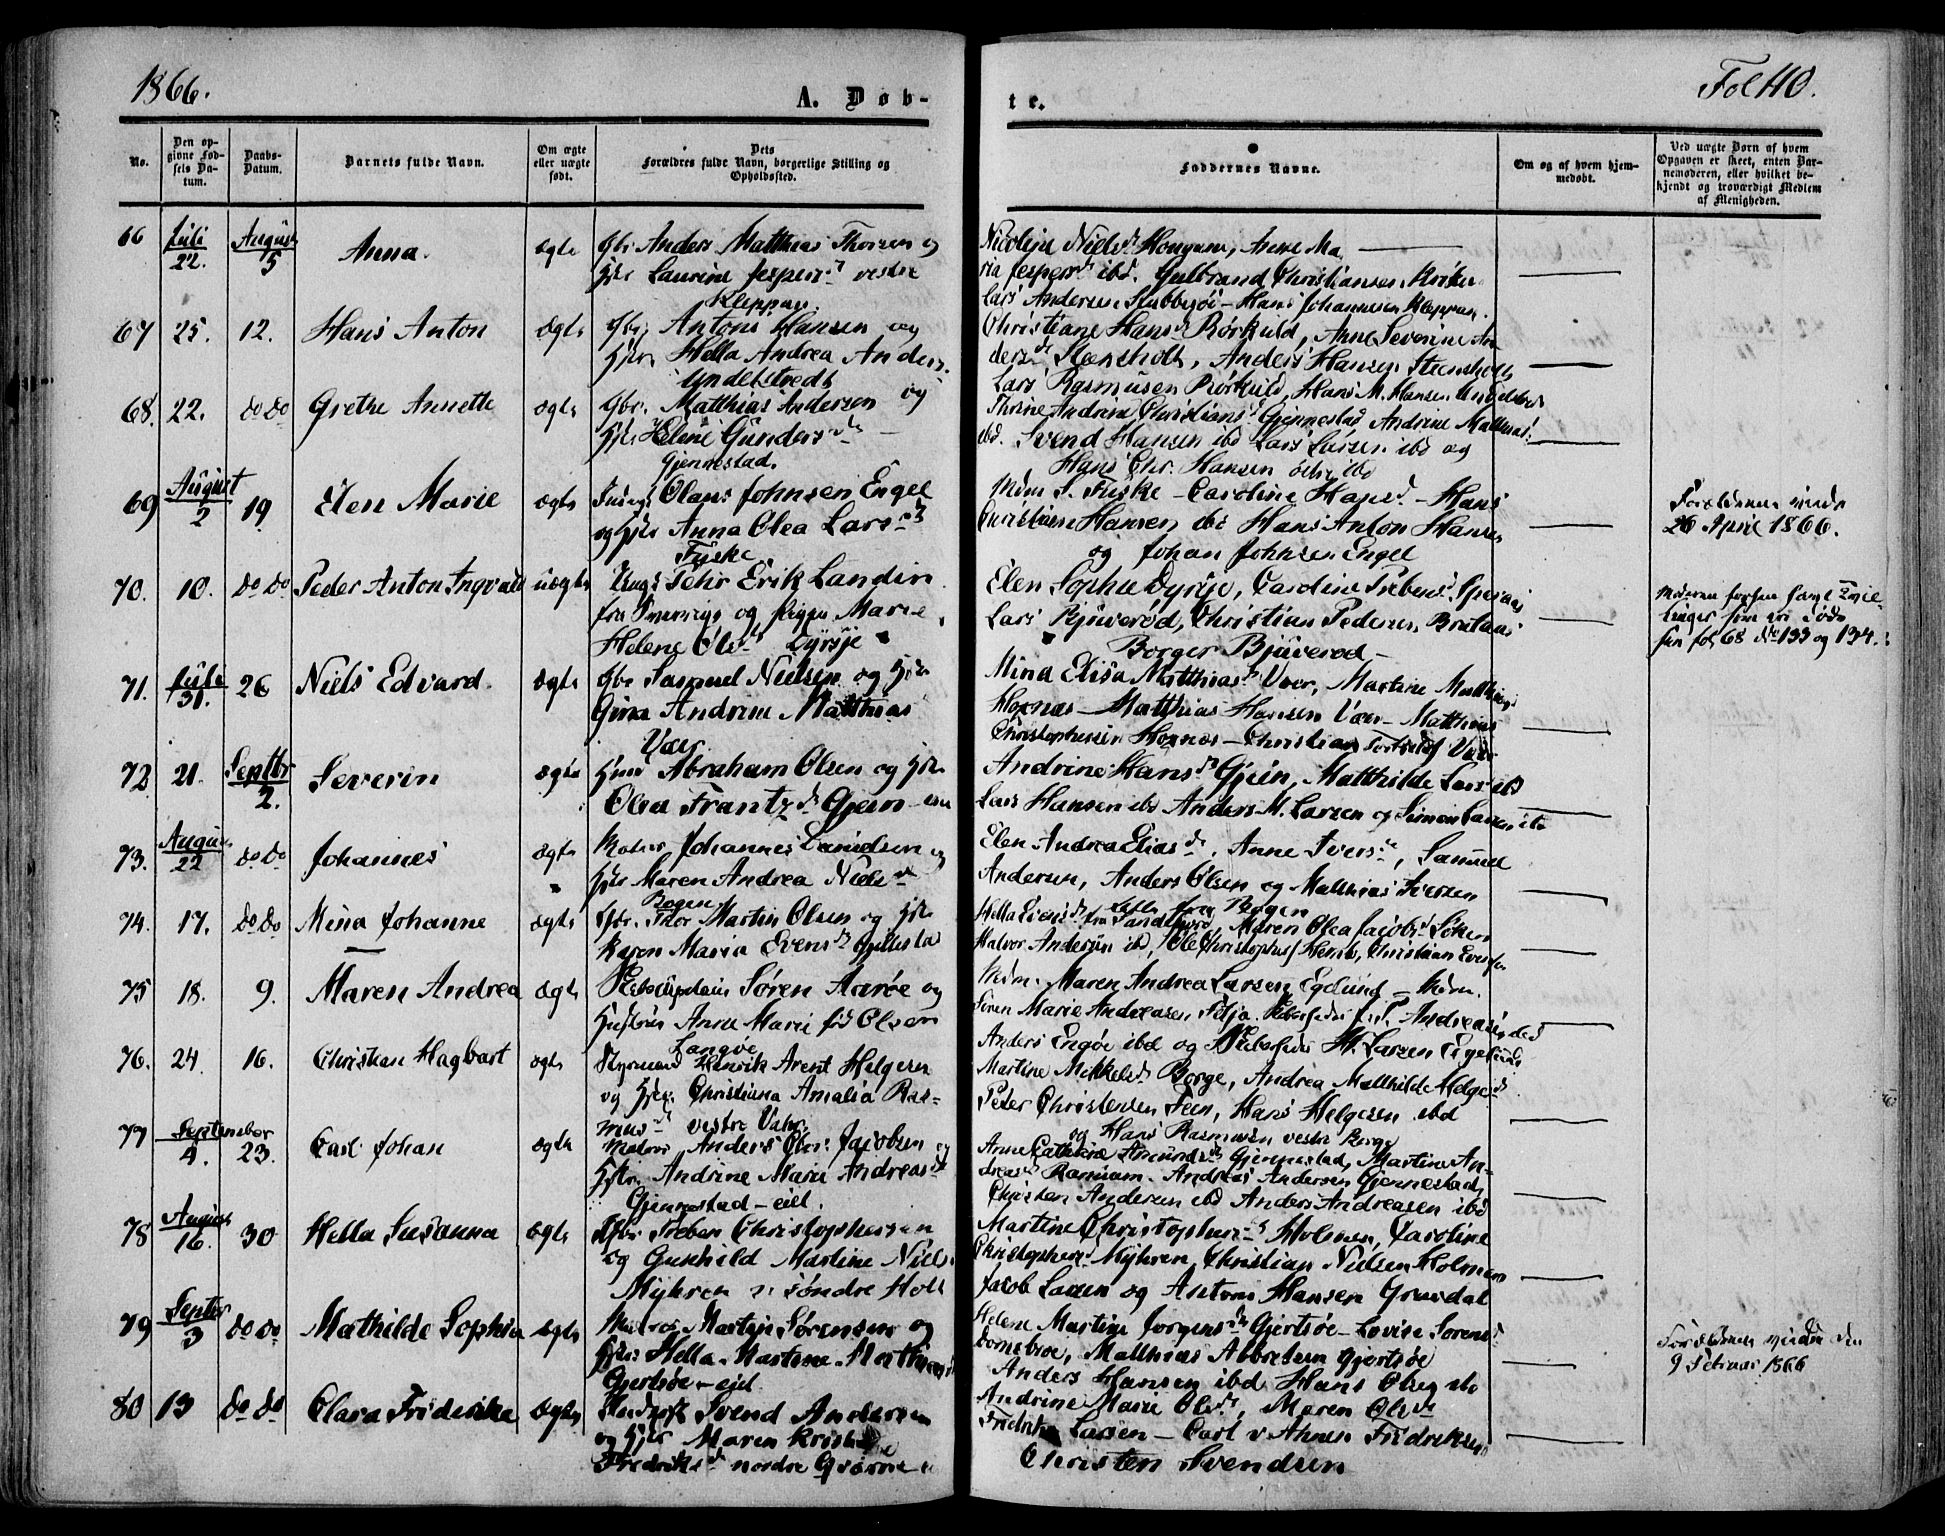 1866.
A. Døb-
te.
Fol 110.
No.
Den op-
givne Fød-
sels Da-
tum.
Daabs-
Datum.
Barnets fulde Navn.
Om ægte
eller uægte
født.
Dets
Forældres fulde Navn, borgerlige Stilling og
Opholdssted.
Faddernes Navne.
Om og af hvem hjem-
medøbt.
Ved uægte Børn af hvem
Opgaven er skeet, enten Bar-
nemoderen, eller hvilket be-
kjendt og troværdigt Medlem
af Menigheden.
66 Juli 22. August 5 Anna. ægte Gbr. Anders Matthias Thorsen og
Hstr Laurine Jespersd vestre
Kleppan.
Nicoline Nielsd Hougum, Anne Ma
ria Jespersd ibd. Gulbrand Christiansen
Lars Andersen Stubbesøi - Hans Johannesen Kleppan.
67 25. 12. Hans Anton ægte Gbr. Antons Hansen og
Hstr. Hella Andrea Anders.
Undelstvedt
Christiane Hansd Rørkuld, Anne Severine An
dersd Steensholt, Anders Hansen Steensholt
Lars Rasmusen Rørkuld, Hans M. Hansen Undelstvedt
68. 22. do do Grethe Annette ægte Gbr. Matthias Andersen og
Hstr Helene Gundersd
Gjennestad.
Thrine Andrine Christiansd Gjennestad Andrine Mathias:
ibd. Svend Hansen ibd Lars Larsen ibd og
Hans Chr. Hansen ibd
69 August 2 19 Elen Marie ægte Olaus Johnsen Engel
og Hstr Anna Olea Larsd
Fuske
Mdm S. Fuske - Caroline Hansd - Hans
Christian Hansen ibd Hans Anton Hansen
og Johan Johnsen Engel
Forældrene viede
26 April 1866.
70. 10. do do Peder Anton Ingvald uægte Ungk Pehr Erik Landin
fra Sverrige og Pigen Marie
Helene Olsd Dyrsje
Elen Sophie Dyrsje, Caroline Prebensd
Lars Bjuverød, Christian Pedersen Brataas
Borger Bjuverød -
Moderen forhen havt Tvil-
linger som ere døde
fol 68 No 133 og 134.
71. Juli 31. 26 Niels Edvard. ægte Gbr Samuel Nielsen og Hstr
Gina Andrine Matthias
Vær
Mina Elisa Matthiasd Vær, Martine Matthiasd
Hoxnæs - Matthias Hansen Vær - Matthias
Christophersen Hoxnæs - Christian Vær
72 21. Septbr 2. Severin ægte Abraham Olsen og Hstr
Olea Frantzd Gjein
Andrine Hansd Gjein, Matthilde Larsd ibd
Lars Hansen ibd Anders M. Larsen og Simon Larsen ibd
73. August 22 do do Johannes ægte Matros Johannes Danielsen og
Hstr Maren Andrea Nielsd
Bogen
Elen Andrea Eliasd, Anne Iversd, Samuel
Andersen, Anders Olsen og Matthias Iversen
alle fra Bogen
74. 17. do do Mina Johanne ægte Gbr. Thor Martin Olsen og Hstr
Karen Maria Evensd
Hella Evensd fra Sandefjord, Maren Olea Jacobsd
Halvor Andersen ibd, Ole Christophers Christian Evensen
75 18. 9. Maren Andrea ægte Skibscaptain Søren Aarøe og
Hustrue Anne Marie fød Olsen
Langøe
Mdm. Maren Andrea Larsen Egelund - Mdm.
Siren Marie Andreasen, Andreasen ibd
Anders Engøe ibd og Skibsreder H. Larsen Egelund
76. 24 16. Christian Hagbart ægte Styrmand Henrik Arent Helgesen
og Hstr. Christiana Amalia Ras-
musd vestre Vahr
Martine Mikkelsd Borge, Andrea Matthilde Helgesd
Peder Christensen Feen, Hans Helgesen ibd
og Hans Rasmusen vestre Borge
77 September 4. 23. Carl Johan ægte Matros Anders Chr. Jacobsen og
Hstr. Andrine Marie Andreasd
Gjennestad - eiet.
Anne Cathrine Amundsd Gjennestad, Martine An-
dreasd Ramsum. Andreas Andersen Gjennestad,
Christen Andersen ibd Anders Andreasen ibd
78 August 16. 30 Hella Susanna ægte Gbr. Preben Christophersen
og Gunhild Martine Niels.
Myhren u. søndre Holt
Martine Christophersd Holmen, Caroline
Christophersd Myhren, Christian Nielsen Holmen
Jacob Larsen og Antons Hansen Gravdal
79 Septbr 3 do do Mathilde Sophia ægte Matros Martin Sørensen og
Hstr. Hella Martine Matthiasd
Gjertsøe - eiet.
Helene Martine Jørgensd Gjertsøe - Lovise Sørensd
Matthias Abbrahsen Gjertsøe
Anders Hansen ibd Hans Olsen ibd
Forældrene viede den
9 Februar 1866
80 13 do do Clara Fridrikka ægte Svend Andersen
og Hstr Maren
Fredriksd nordre
Andrine Marie Olsd, Maren Olsd
Fredrik Larsen - Carl Fredriksen
Christen Svendsen